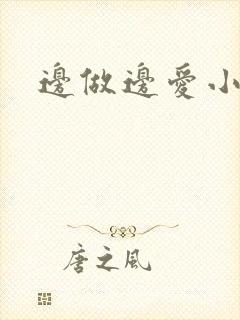 邊做邊愛小
唐之风